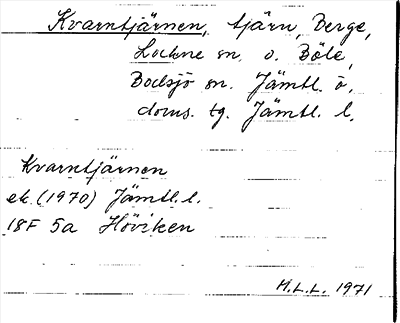 Kvarntjärnen, tjärn, Berge,
Lockne sn. o. Böle,
Bodsjö sn. Jämtl. ö.
doms. tg. Jämtl. l.
Kvarntjärnen
ek. (1970) Jämtl. l.
18F 5a Höviken
M.L.L. 1971